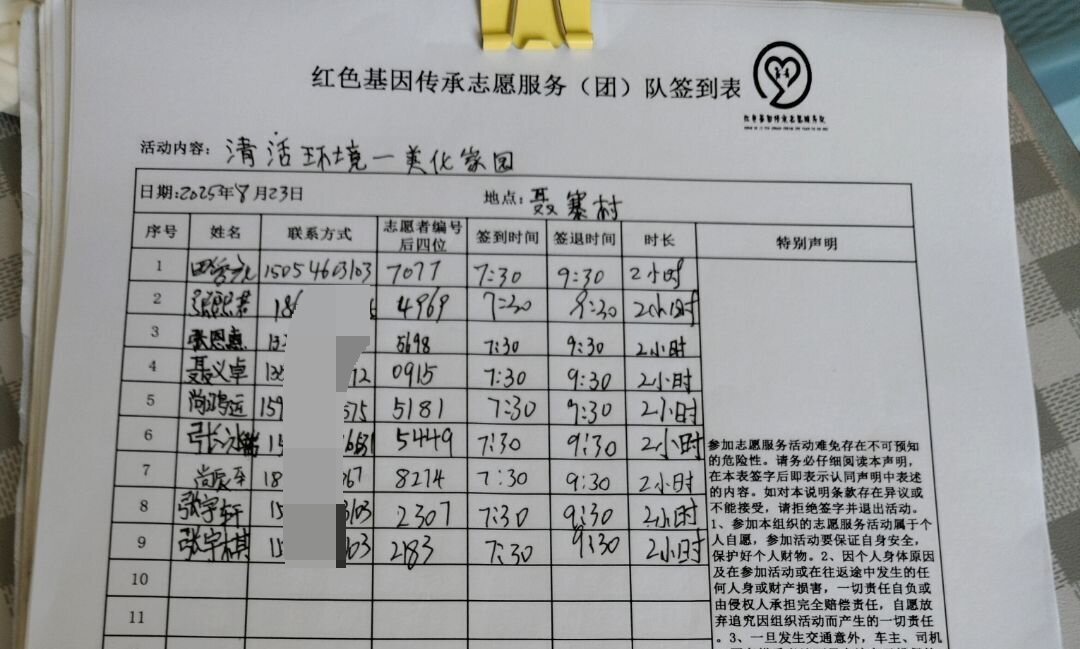 红色基因传承志愿服务（团）队签到表
红色基因传承志愿服务队
活动内容：清洁环境一美化家园
日期:2025年8月23日 地点:聂寨村
序号 姓名 联系方式 志愿者编号后四位 签到时间 签退时间 时长 特别声明
1 15054603103 7077 7:30 9:30 2小时
2 张熙若 18 4969 7:30 9:30 2小时
3 张恩惠 13 5698 7:30 9:30 2小时
4 聂义卓 13 72 0915 7:30 9:30 2小时
5 尚鸿运 159 575 5181 7:30 9:30 2小时
6 15 5449 7:30 9:30 2小时
7 18 67 8274 7:30 9:30 2小时
8 张宇轩 15 3103 2307 7:30 9:30 2小时
9 张宇棋 15 03 2183 7:30 9:30 2小时
10
11
参加志愿服务活动难免存在不可预知
的危险性。请务必仔细阅读本声明，
在本表签字后即表示认同声明中表述
的内容。如对本说明条款存在异议或
不能接受，请拒绝签字并退出活动。
1、参加本组织的志愿服务活动属于个
人自愿，参加活动要保证自身安全，
保护好个人财物。2、因个人身体原因
及在参加活动或在往返途中发生的任
何人身或财产损害，一切责任自负或
由侵权人承担完全赔偿责任，自愿放
弃追究因组织活动而产生的一切责任
。3、一旦发生交通意外，车主、司机